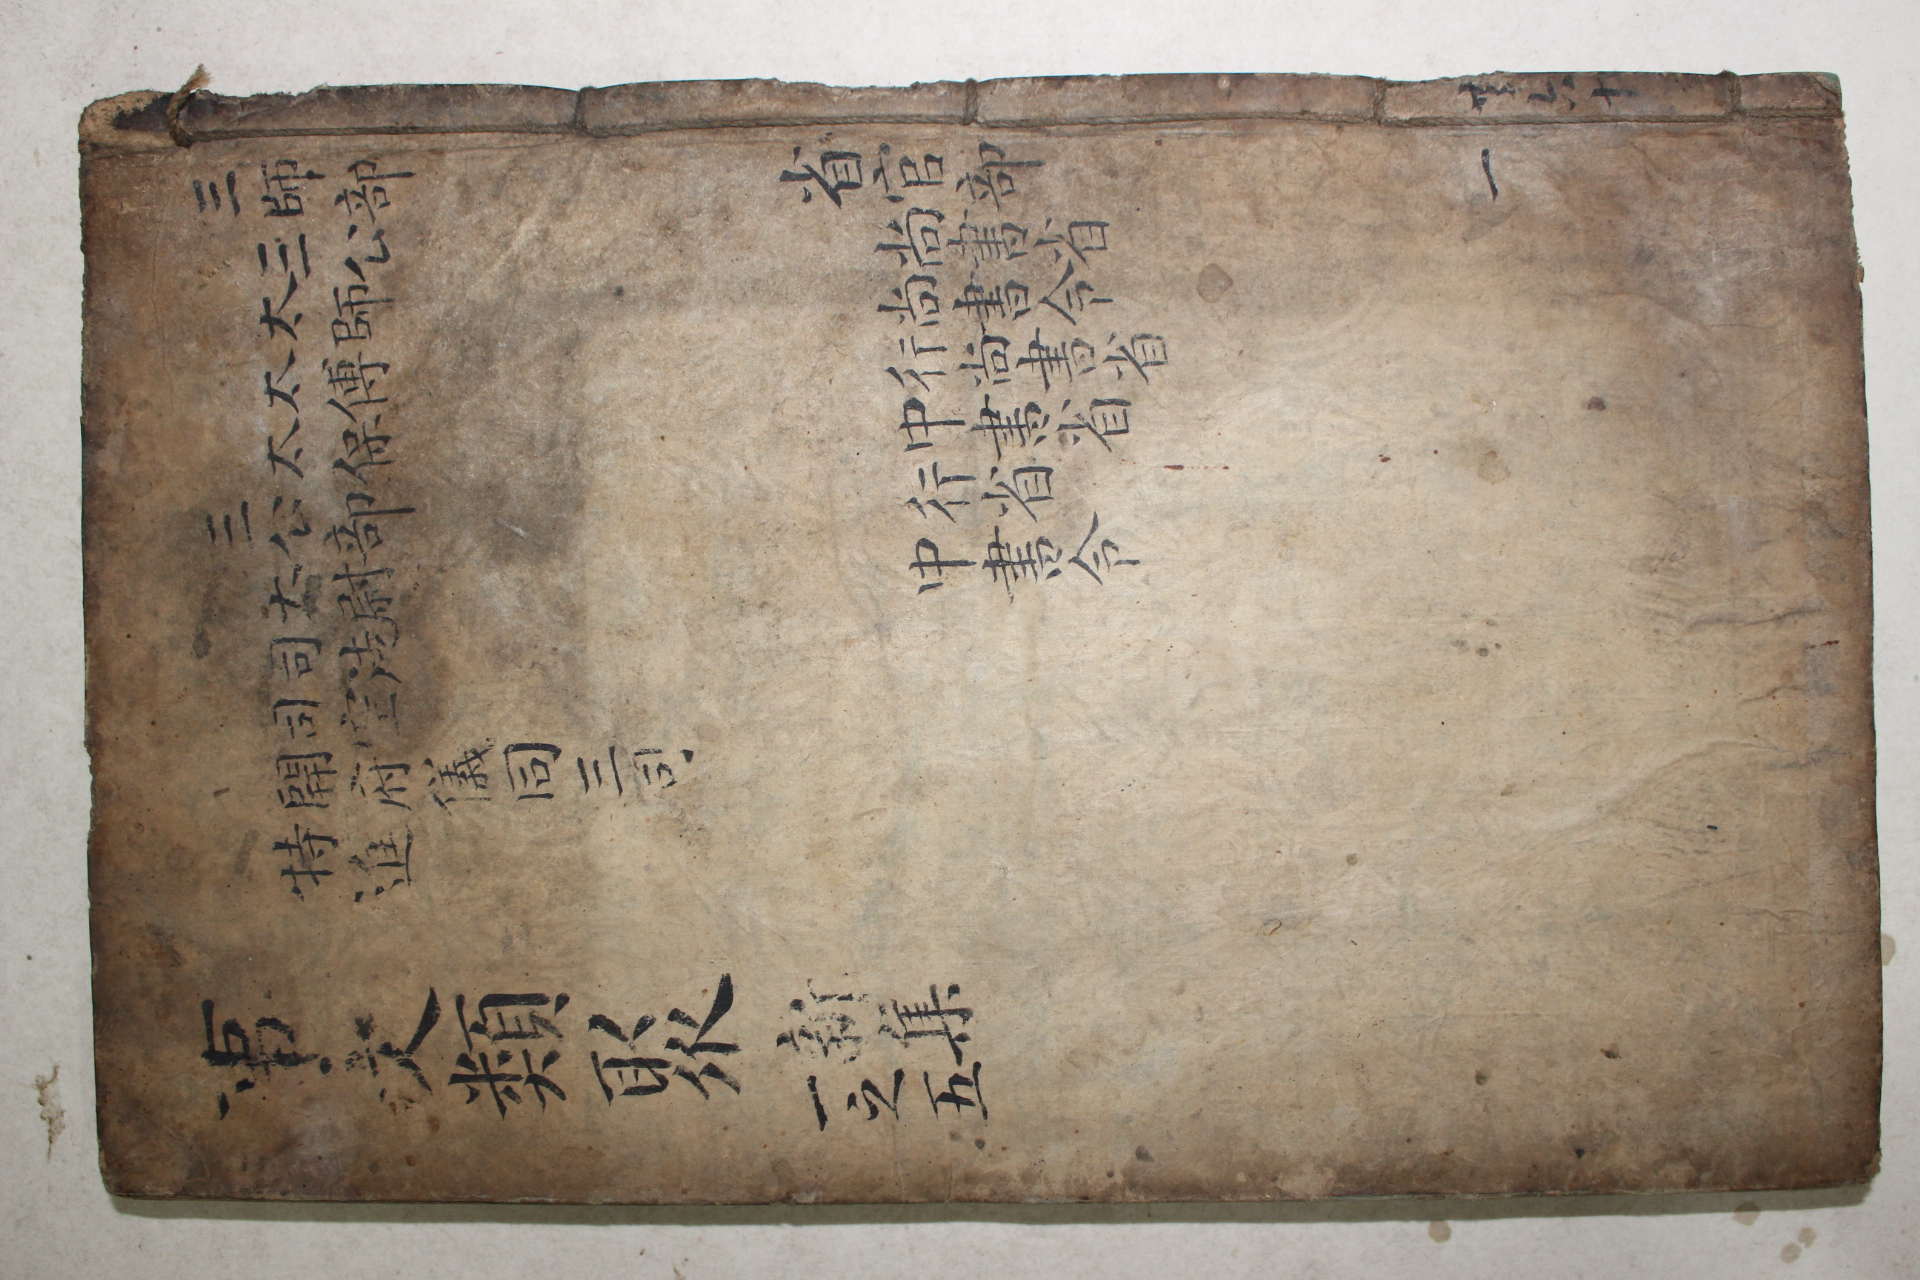 三師部
三公
太師
太傅
太保
三公部
太尉
司徒
司空
開府儀同三司
特進
省官部
尚書省
尚書令
行尚書省
中書省
行省
中書令
事文類聚
新集
一之五
一
六十